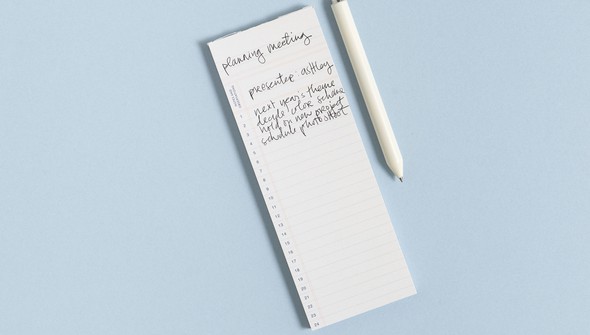 planning meeting
presenter: ashley
next year's theme
decide color scheme
hold on new project
schedule photoshoot
1
2
3
4
5
6
7
8
9
10
11
12
13
14
15
16
17
18
19
20
21
22
23
24